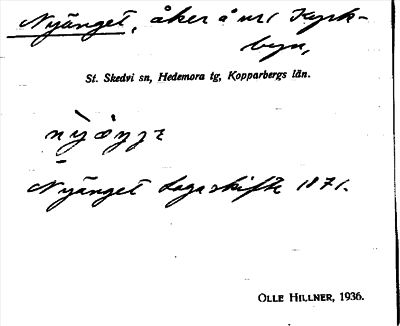 Nyänget, åker å nr 1 Kyrk-
byn,
St. Skedvi sn, Hedemora tg, Kopparbergs län.
Nyänget Laga skifte 1871.
OLLE HILLNER, 1936.